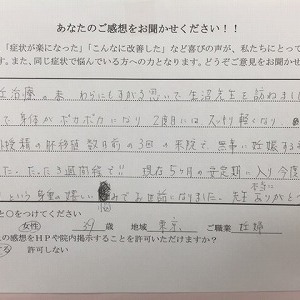 あなたのご感想をお聞かせください！！
「症状が楽になった」「こんなに改善した」など喜びの声が、私たちにとって
す。また、同じ症状で悩んでいる方への力となります。どうぞご意見をお聞かせ
妊治療の末 わらにもすがる思いで生沼先生を訪ねました
で身体がポカポカになり 2度目には スッキリ軽くなり
移植の 数日前の3回の来院で 無事に妊娠する
た。たった3週間後で!! 現在5ヶ月の安定期に入り 今度
という 嬉しい悩みでお世話になりました。先生 本当に ありがと
と○をつけてください
女性 39歳 地域 東京 ご職業 妊婦
の感想をＨＰや院内掲示することを許可いただけますか？
する 許可しない